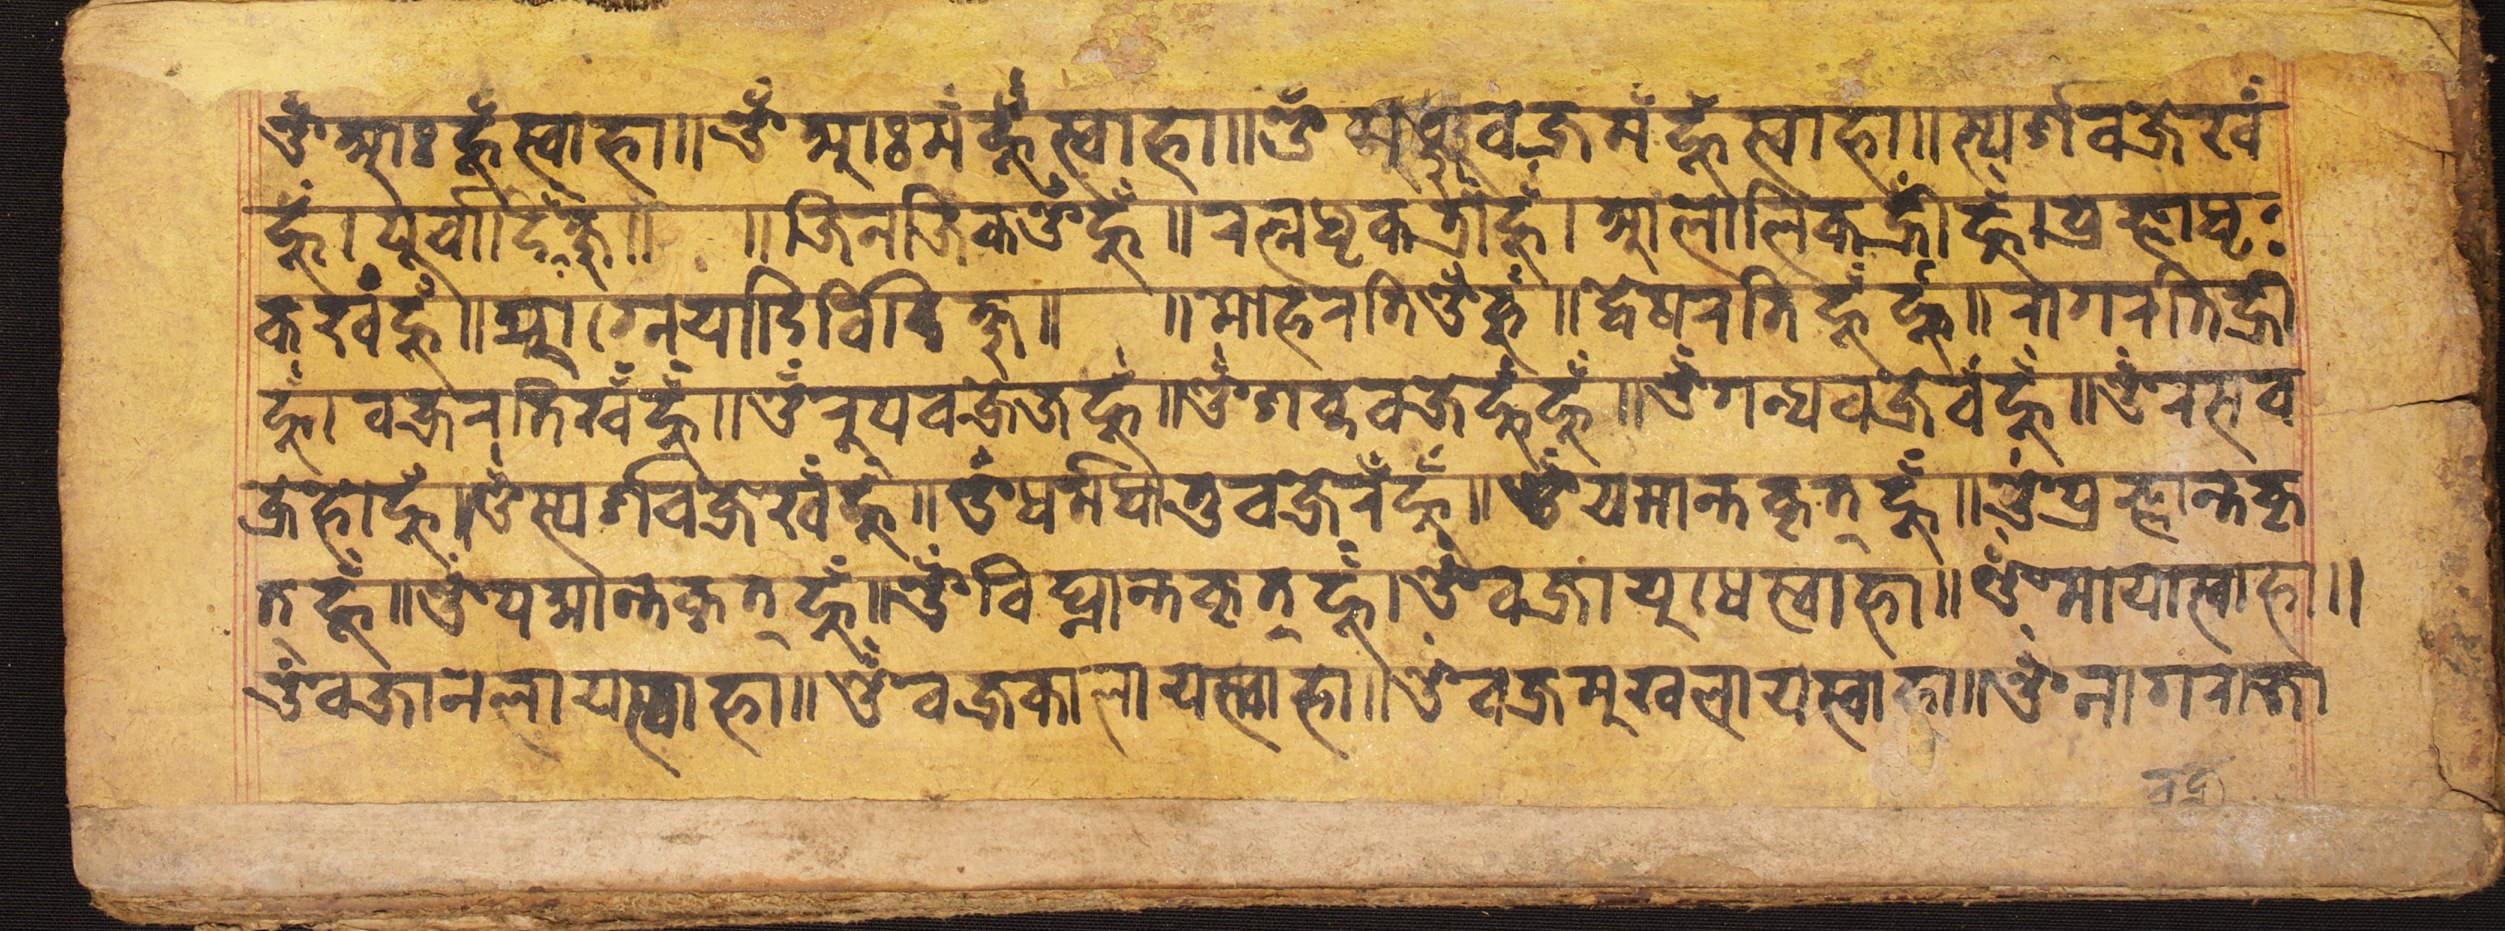 ॐ आः हूँ स्वाहा ॥ ॐ आः मं हूँ स्वाहा ॥ ॐ वज्र मं हूँ स्वाहा ॥ स्पर्शवज्रे खं
हूँ । पूर्वादिदिक्षु ॥ ॥ जिनजिक ॐ हूँ ॥ रत्नधृक त्रां हूँ । आलोलिक ह्रीं हूँ । प्रज्ञाधृ
क खं हूँ ॥ आग्नेयादिविदिक्षु ॥ ॥ मोहरति ॐ हूँ ॥ द्वेषरति हूँ हूँ ॥ रागरति ह्री
हूँ । वज्ररति खं हूँ ॥ ॐ रुपवज्रे ज हूँ ॥ ॐ शब्दवज्रे हूँ हूँ ॥ ॐ गन्धवज्रे वं हूँ ॥ ॐ रसव
ज्रे हो हूँ । ॐ स्पर्शवज्रे खं हूँ ॥ ॐ धर्मधातुवज्रे रं हूँ ॥ ॐ यमान्तकृत् हूँ ॥ ॐ प्रज्ञान्तकृ
त हूँ ॥ ॐ पद्मान्तकृत् हूँ ॥ ॐ विघ्नान्तकृत् हूँ । ॐ वज्रायुधे स्वाहा ॥ ॐ माया स्वाहा ॥
ॐ वज्रानलाय स्वाहा ॥ ॐ वज्रकालाय स्वाहा ॥ ॐ वज्रमुखलाय स्वाहा ॥ ॐ नागराजा